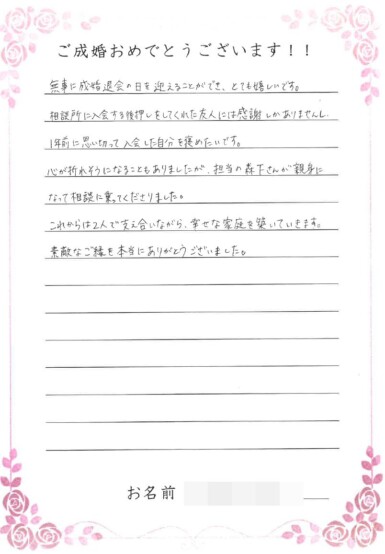 ご成婚おめでとうございます！！
無事に成婚退会の日を迎えることができ、とても嬉しいです。
相談所に入会する後押しをしてくれた友人には感謝しかありませんし、
1年前に思い切って入会した自分を褒めたいです。
心が折れそうになることもありましたが、担当の森下さんが親身に
なって相談に乗ってくださりました。
これからは2人で支え合いながら、幸せな家庭を築いていきます。
素敵なご縁を本当にありがとうございました。
お名前